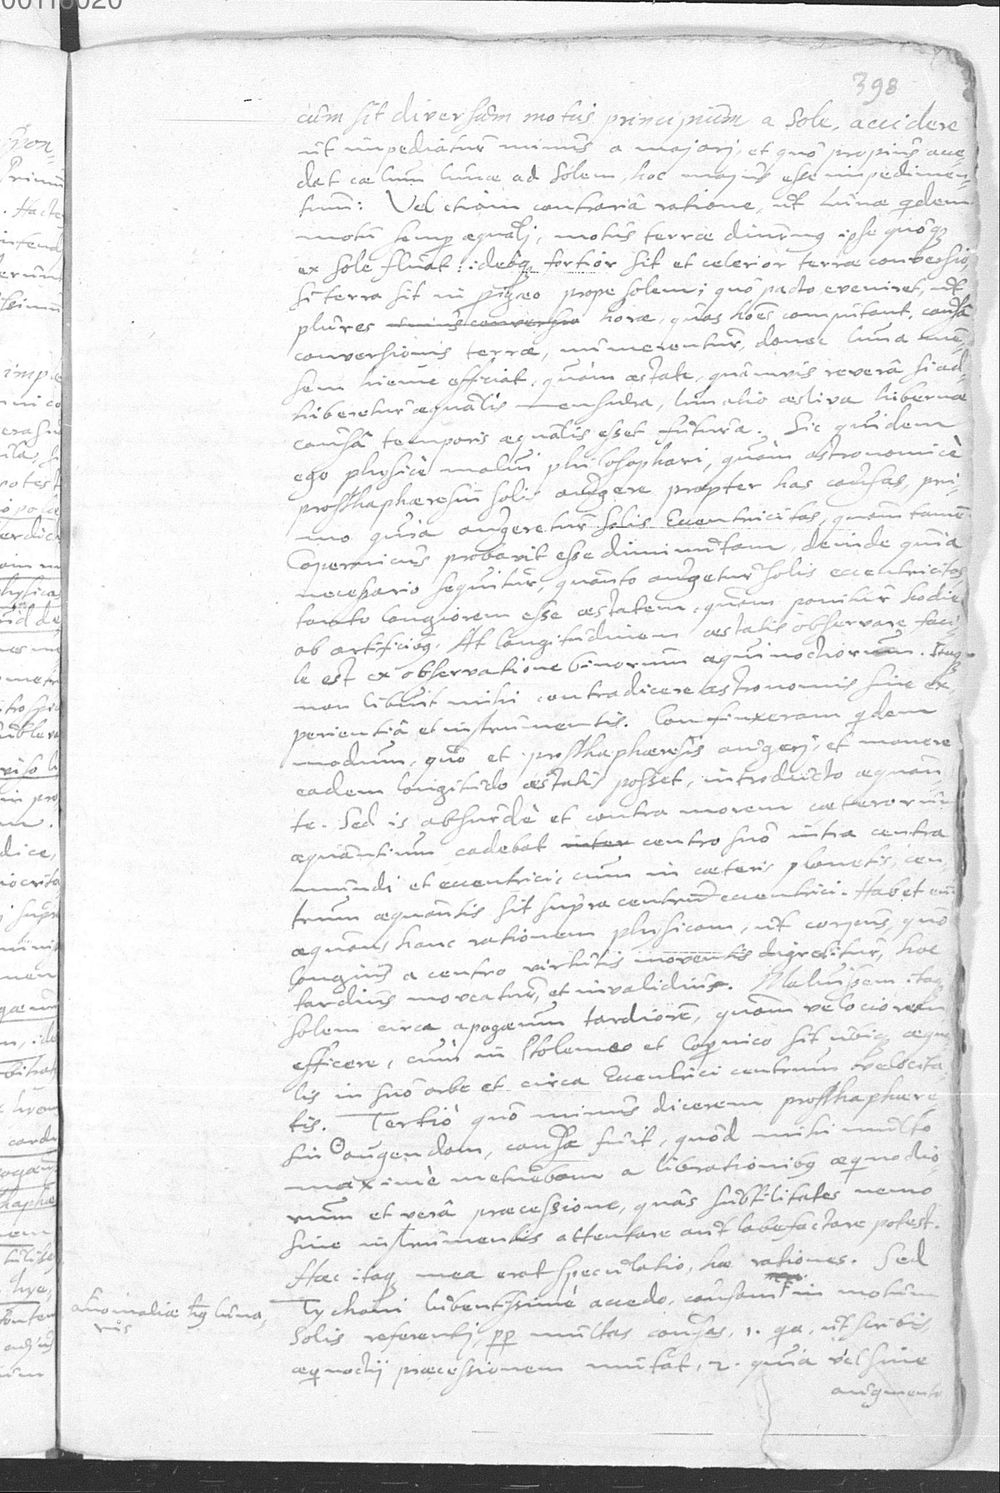 398
cùm sit diversum motus principium a Sole, accidere
ut impediatur minus a majorj, et quò propius acce,
dat caelum lunae ad Solem, hoc majus esse impedimen,
tum: Vel etiam contrariâ ratione, ut Lunae qdem
motu semp aequalj, motus terrae diurnus ipse quoq
ex Sole fluat: ideoq fortior sit et celerior terrae conversio,
si terra sit in perigaeo prope Solem; quo pacto eveniret, ut
plures unius conversio horae, quas hoes computant, causâ
conversionis terrae, numerentur, donec luna men,
sem hieme efficiat, quàm aestate, quamvis reverâ si ad,
hiberetur aequalis mensura, lunatio aestiva hibernae
causâ temporis aequalis esset futura. Sic quidem
ego physicè malui philosophari, quàm astronomicè
prosthaphaeresin Solis augere propter has causas, pri,
mo quia augeretur Solis Eccentricitas, quam tamen
Copernicus probavit esse diminutam, deinde quia
necessario sequitur, quanto augetur Solis eccentricitas
tanto longiorem esse aestatem, quàm ponitur hodie
ab artificibus. At longitudinem aestatis observare faci,
le est ex observatione binorum aequinoctiorum. Itaq
non libuit mihi contradicere astronomis sine ex,
perientiâ et instrumentis. Confinxeram qdem
modum, quo et prosthaphaeresis augerj, et manere
eadem longitudo aestatis posset, introducto aequan
te. Sed is absurdè et contra morem caeterorum
aequantium cadebat inter centro suo intra centra
mundi et eccentrici, cum in caeteris planetis, cen
trum aequantis sit supra centrum eccentrici. Habet enim
aequans hanc rationem physicam, ut corpus, quò
longius a centro virtutis moventis digreditur, hoc
tardius moveatur, et invalidius. Maluissem itaq
Solem circa apogaeum tardiorem, quàm velociorem
efficere, cum in Ptolemaeo et Copnico sit ubiq aequa
lis in suo orbe et circa Eccentrici centrum velocita
tis. Tertiò quò minus dicerem prosthaphaere
sin ☉ augendam, causa fuit, quòd mihi multo
maximè metuebam a librationibq aequinoctio
rum et verâ praecessione, quas subtilitates nemo
sine instrumentis attentare aut labefactare potest.
Haec itaq mea erat speculatio, hae rationes. Sed
Tychoni lubentissimè accedo, causam in motum
Solis referenti, pp multas causas, 1. qa, ut scribis
aequinoctii praecessionem mutat, 2. quia vel sine
augmento
anomaliae hq luna,
ris